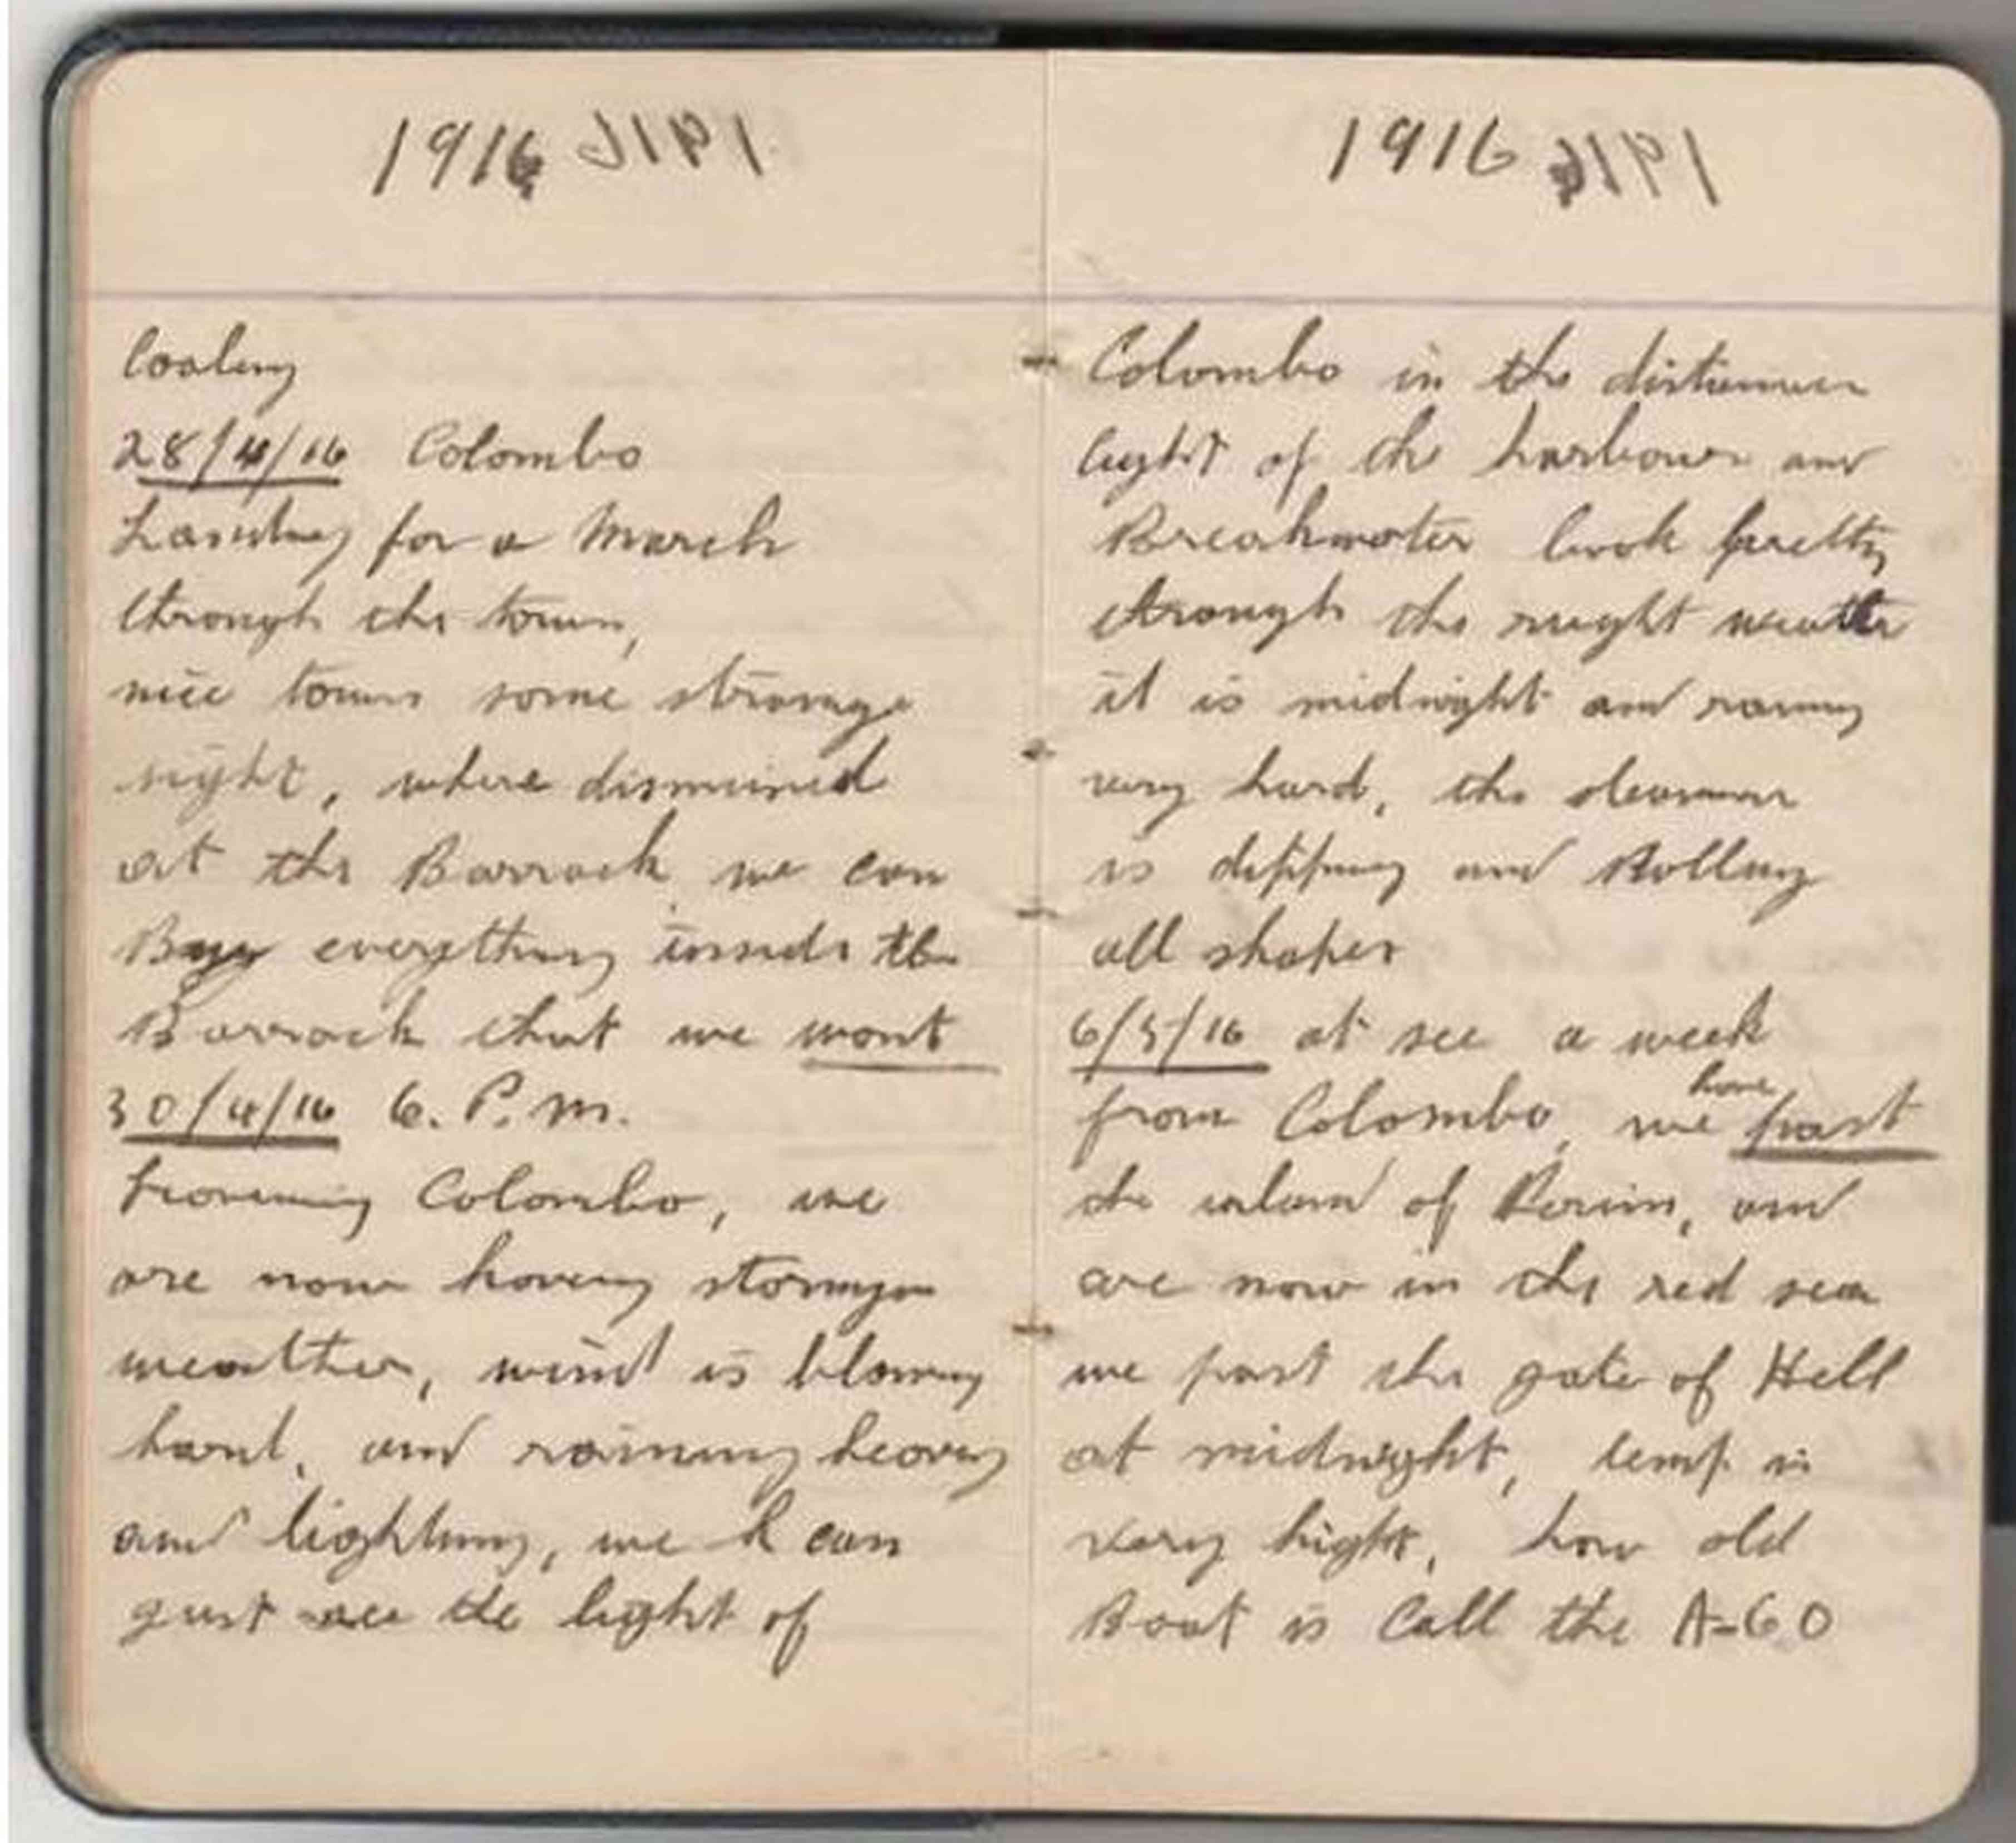 1916
Coaling
28/4/16 Colombo
Landing for a March
through the town,
nice town some strange
sight, where dismissed
at the Barrack we can
Buy everything inside the
Barrack that we want
30/4/16 6. P.m.
Leaveing Colombo, we
are now having stormy
weather, wind is blowing
hard, and raining heavy
and lightning, we can
just see the light of
1916
Colombo in the
light of the harbour and
Breakwater look pretty
through the night weather
it is midnight and raining
very hard, the steamer
is dipping and Rolling
all shapes
6/5/16 at see a week
from Colombo, we have past
the island of Perim, and
are now in the red sea
we past the gate of Hell
at midnight, temp is
very hight, how old
Boat is Call the A-60